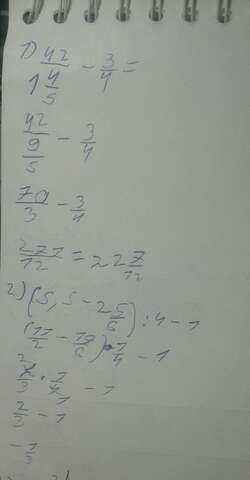 1) 42/(1 4/5) - 3/4 =
42/(9/5) - 3/4
70/3 - 3/4
271/12 = 22 7/12
2) (5,5 - 2 5/6) : 4 - 1
(11/2 - 17/6) · 1/4 - 1
8/3 · 1/4 - 1
2/3 - 1
- 1/3